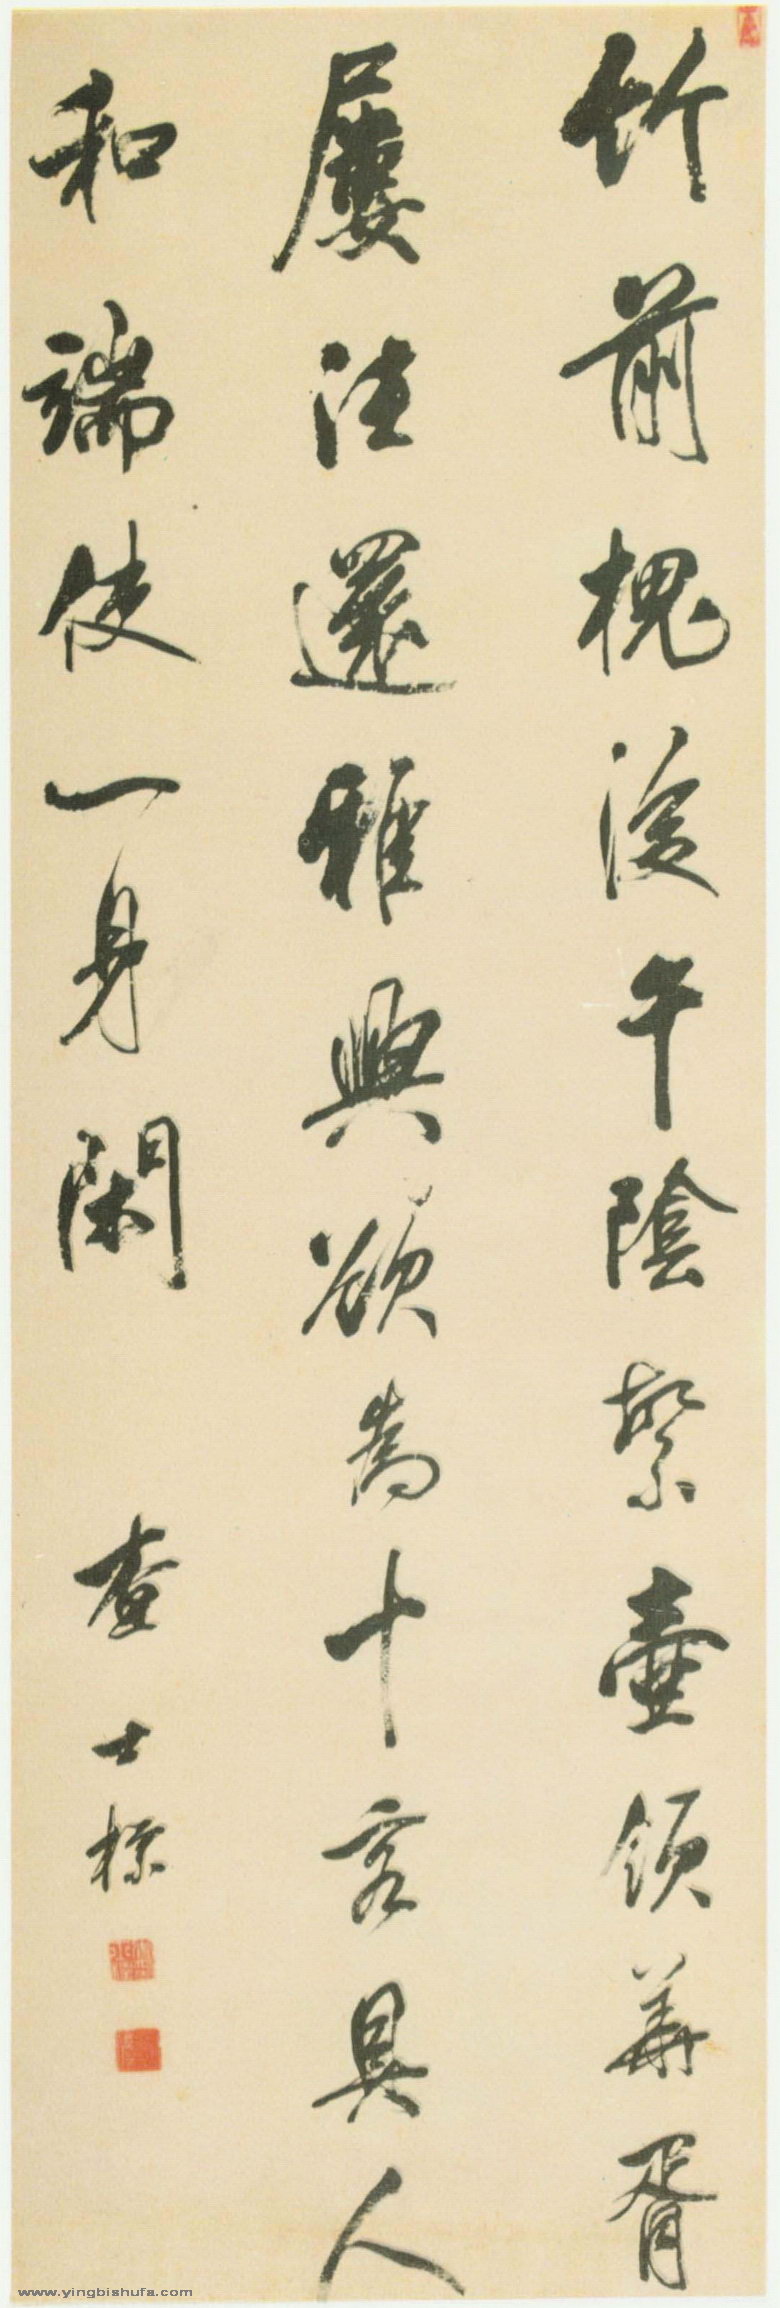 竹前槐後午陰繁壺領華胥
屢往還雅興欲為十客具人
和端使一身閑
查士標
www.yingbishufa.com